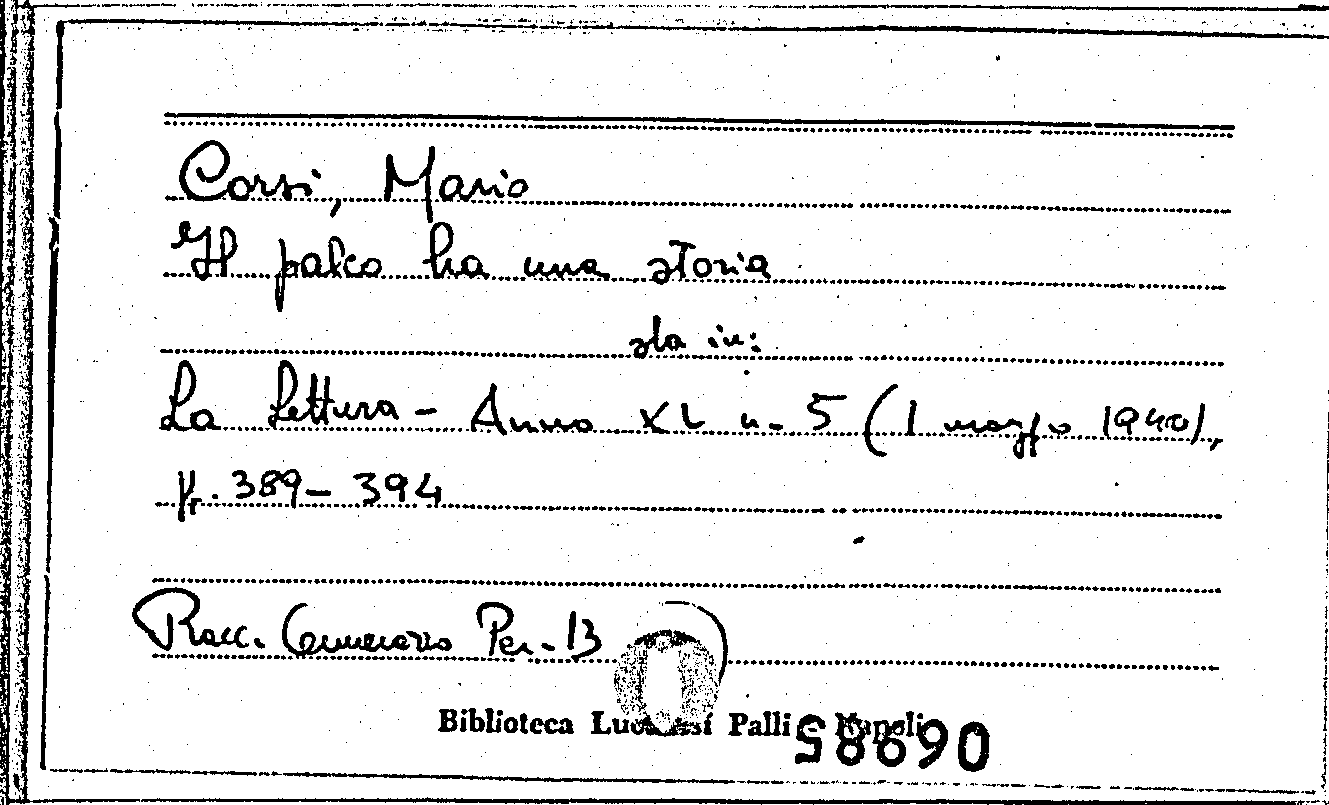 Corsi, Mario
Il palco ha una storia
sta in:
La Lettura - Anno XL n. 5 (1 marzo 1940),
pp. 389-394
Racc. Per. 13
Biblioteca Lucchesi Palli - Napoli